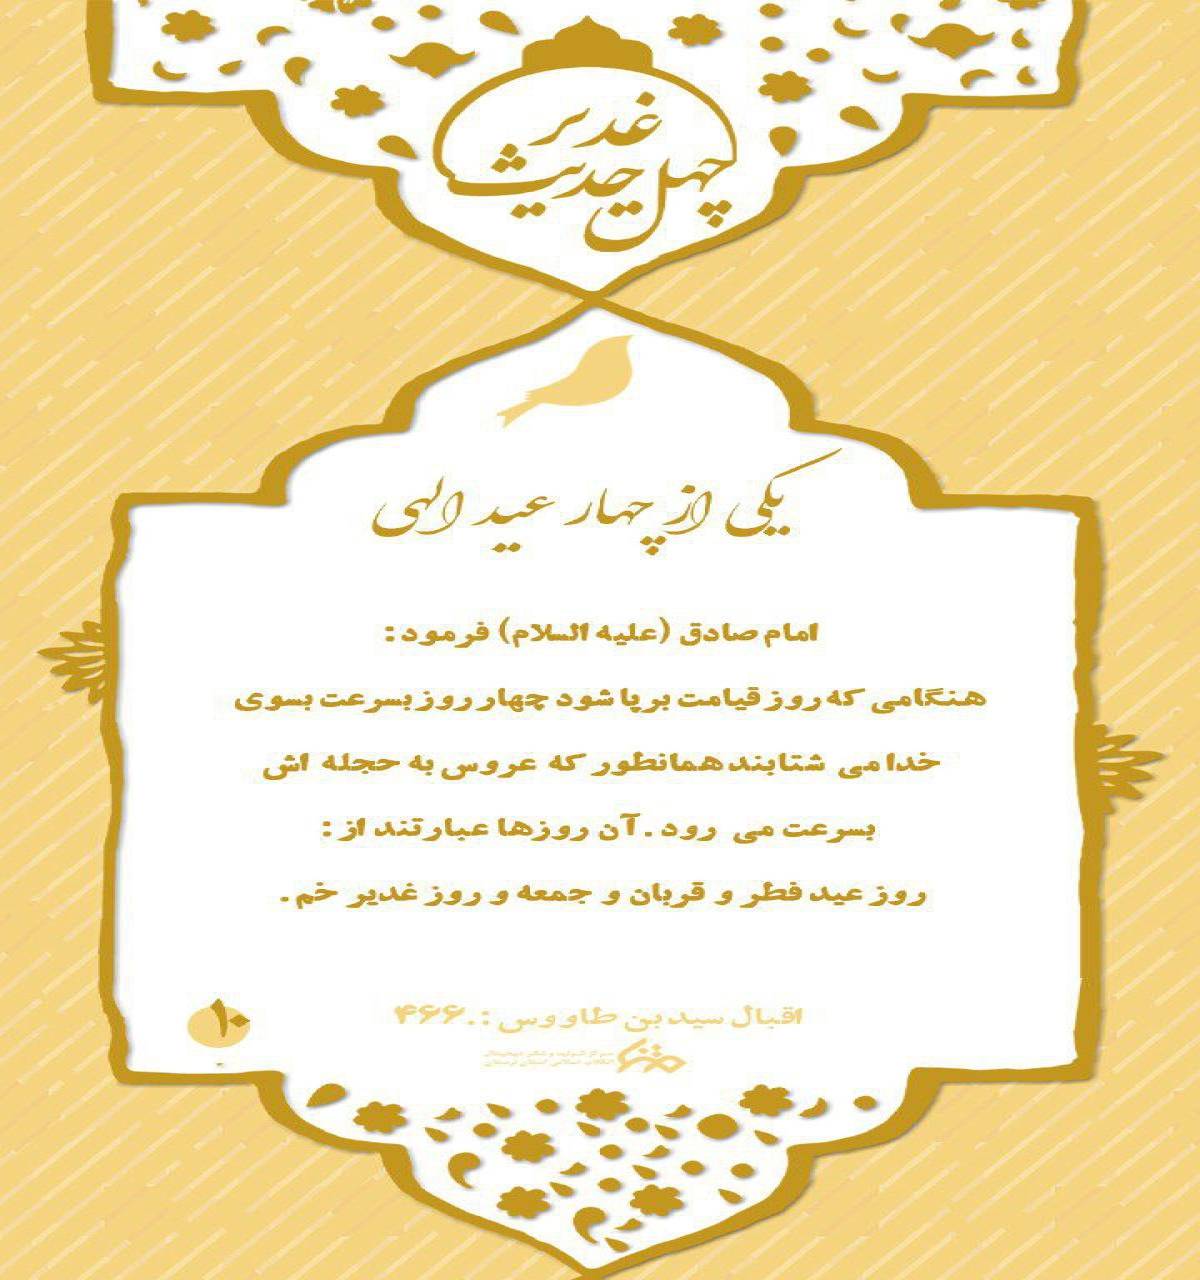 غدیر
چهل حدیث
یکی از چهار عید الهی
امام صادق (علیه السلام) فرمود :
هنگامی که روز قیامت برپا شود چهار روز بسرعت بسوی
خدا می شتابند همانطور که عروس به حجله اش
بسرعت می رود . آن روزها عبارتند از :
روز عید فطر و قربان و جمعه و روز غدیر خم .
اقبال سید بن طاووس : ۴۶۶.
۱۰